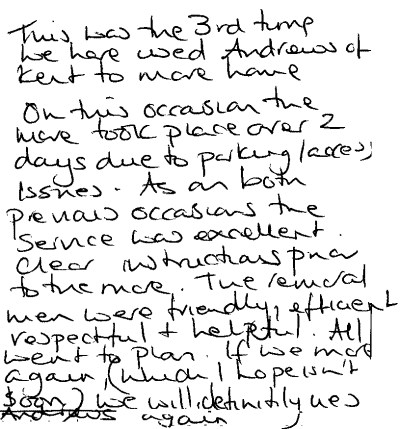 This was the 3rd time
we have used Andrews of
Kent to move home
On this occasion the
move took place over 2
days due to parking/access
issues. As on both
previous occasions the
service was excellent.
Clear instructions prior
to the move. The removal
men were friendly, efficient
respectful + helpful. All
went to plan. If we move
again, (which I hope isn't
soon) we will definitly use
Andrews again